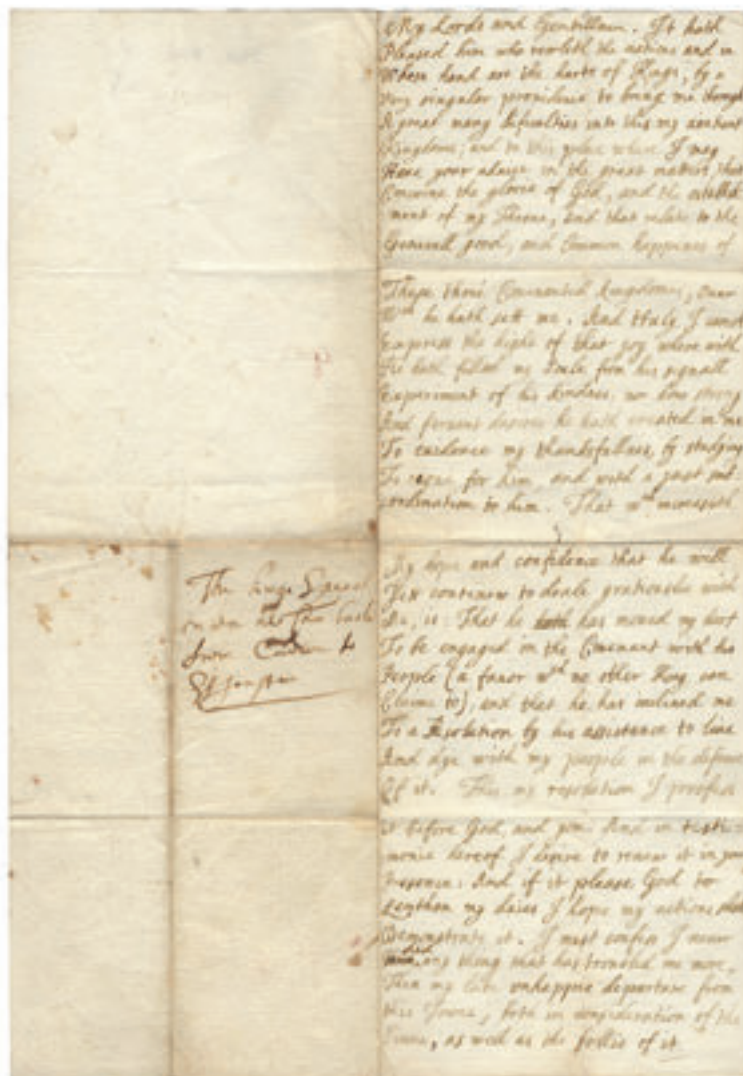 My Lords and Gentillmen. It hath
Pleased him who rewleth the nations and in
Whose hand are the harts of Kings, by a
Very singular providence to bring me through
A great many dificulties into this my antient
Kingdome, and to this place where I may
Have your advise in the great matters that
Concerne the glorie of God, and the establish
ment of my Throne, and that relate to the
Generall good, and Common happines of
These three Covenanted Kingdomes, over
Wch he hath sett me. And trulie I cannot
Express the hight of that joy wherewith
He hath filled my soule from his signall
Experiment of his kindnes, nor how strong
And fervent desires he hath created in me
To evidence my thankfullnes, by studying
To for him, and with a just sub
ordination to him. That wch
My hope and confidence that he will
Yet continew to deale gratiouslie with
Me, is: That he has moved my hart
To be engaged in the Covenant with his
People (a favor wch no other King can
Claime to), and that he has inclined me
To a Resolution by his assistance to live
And dye with my people in the defence
Of it. This my resolution I profess
it before God, and you. And in testi
monie hereof I desire to renew it in your
Presence: And if it please God to
Lenthen my daies I hope my actions shall
Demonstrate it. I must confess I never
did any thing that has troubled me more,
Then my late unhappie departure from
this Towne, both in consideration of the
Sinne, as well as the follie of it
The Kings Speech